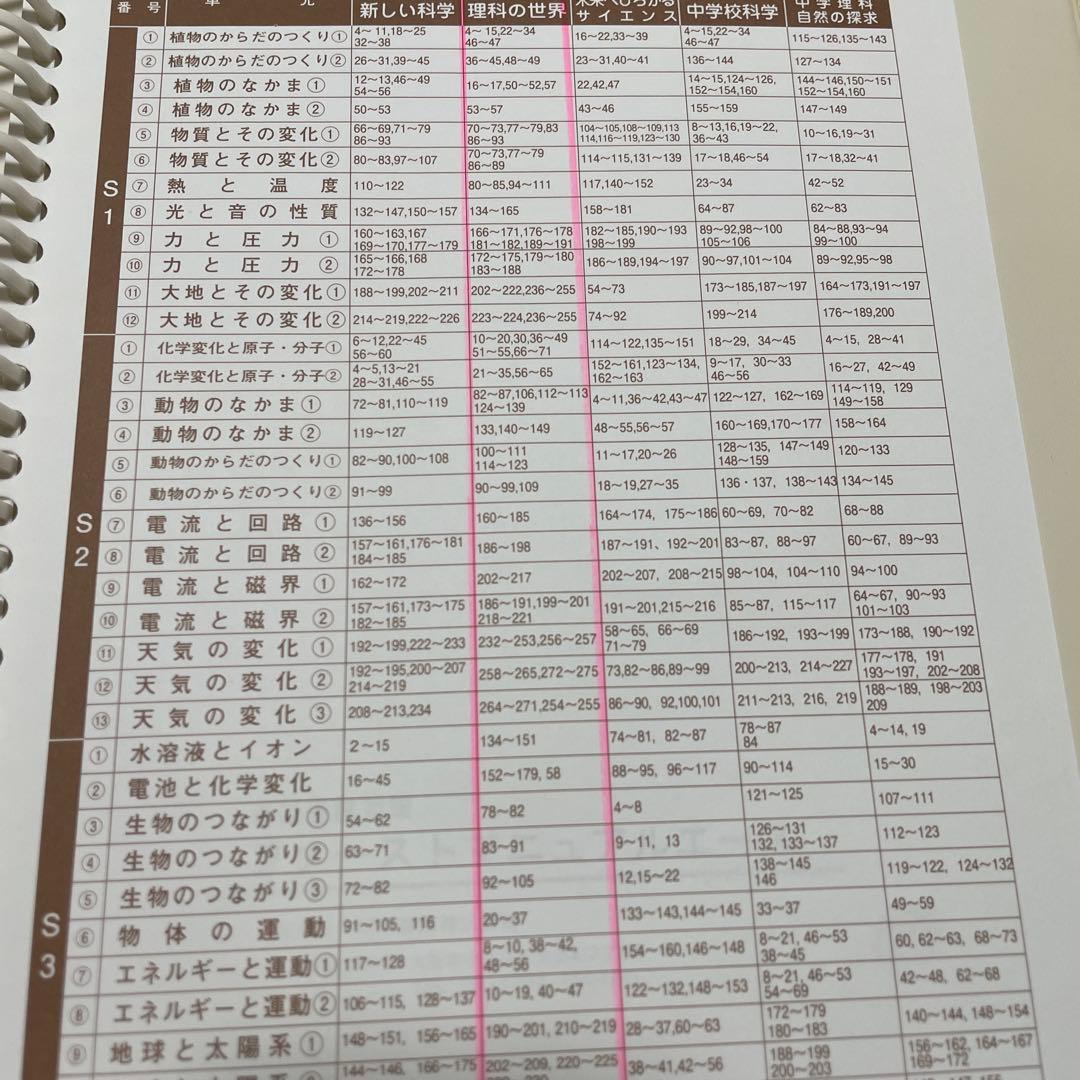 番号 単元 新しい科学 理科の世界 未来へひろがるサイエンス 中学校科学 中学理科自然の探求
S1
① 植物のからだのつくり① 4〜11,18〜25 32〜38 4〜15,22〜34 46〜47 16〜22,33〜39 4〜15,22〜34 46〜47 115〜126,135〜143
② 植物のからだのつくり② 26〜31,39〜45 36〜45,48〜49 23〜31,40〜41 136〜144 127〜134
③ 植物のなかま① 12〜13,46〜49 54〜56 16〜17,50〜52,57 22,42,47 14〜15,124〜126, 152〜154,160 144〜146,150〜151 152〜154,160
④ 植物のなかま② 50〜53 53〜57 43〜46 155〜159 147〜149
⑤ 物質とその変化① 66〜69,71〜79 86〜93 70〜73,77〜79,83 86〜93 104〜105,108〜109,113 114,116〜119,123〜130 8〜13,16,19〜22, 36〜43 10〜16,19〜31
⑥ 物質とその変化② 80〜83,97〜107 70〜73,77〜79 86〜89 114〜115,131〜139 17〜18,46〜54 17〜18,32〜41
⑦ 熱と温度 110〜122 80〜85,94〜111 117,140〜152 23〜34 42〜52
⑧ 光と音の性質 132〜147,150〜157 134〜165 158〜181 64〜87 62〜83
⑨ 力と圧力① 160〜163,167 169〜170,177〜179 166〜171,176〜178 181〜182,189〜191 182〜185,190〜193 198〜199 89〜92,98〜100 105〜106 84〜88,93〜94 99〜100
⑩ 力と圧力② 165〜166,168 172〜178 172〜175,179〜180 183〜188 186〜189,194〜197 90〜97,101〜104 89〜92,95〜98
⑪ 大地とその変化① 188〜199,202〜211 202〜222,236〜255 54〜73 173〜185,187〜197 164〜173,191〜197
⑫ 大地とその変化② 214〜219,222〜226 223〜224,236〜255 74〜92 199〜214 176〜189,200
S2
① 化学変化と原子・分子① 6〜12,22〜45 56〜60 10〜20,30,36〜49 51〜55,66〜71 114〜122,135〜151 18〜29, 34〜45 4〜15, 28〜41
② 化学変化と原子・分子② 4〜5,13〜21 28〜31,46〜55 21〜35,56〜65 152〜161,123〜134, 162〜163 9〜17, 30〜33 46〜56 16〜27, 42〜49
③ 動物のなかま① 72〜81,110〜119 82〜87,106,112〜113 124〜139 4〜11,36〜42,43〜47 122〜127, 162〜169 114〜119, 129 149〜158
④ 動物のなかま② 119〜127 133,140〜149 48〜55,56〜57 160〜169,170〜177 158〜164
⑤ 動物のからだのつくり① 82〜90,100〜108 100〜111 114〜123 11〜17,20〜26 128〜135, 147〜149 148〜159 120〜133
⑥ 動物のからだのつくり② 91〜99 90〜99,109 18〜19,27〜35 136・137, 138〜143 134〜145
⑦ 電流と回路① 136〜156 160〜185 164〜174, 175〜186 60〜69, 70〜82 68〜88
⑧ 電流と回路② 157〜161,176〜181 184〜185 186〜198 187〜191、192〜201 83〜87, 88〜97 60〜67, 89〜93
⑨ 電流と磁界① 162〜172 202〜217 202〜207, 208〜215 98〜104, 104〜110 94〜100
⑩ 電流と磁界② 157〜161,173〜175 182〜185 186〜191,199〜201 218〜221 191〜201,215〜216 85〜87, 115〜117 64〜67, 90〜93 101〜103
⑪ 天気の変化① 192〜199,222〜233 232〜253,256〜257 58〜65, 66〜69 71〜79 186〜192, 193〜199 173〜188, 190〜192
⑫ 天気の変化② 192〜195,200〜207 214〜219 258〜265,272〜275 73,82〜86,89〜99 200〜213, 214〜227 177〜178, 191 193〜197, 202〜208
⑬ 天気の変化③ 208〜213,234 264〜271,254〜255 86〜90, 92,100,101 211〜213, 216, 219 188〜189, 198〜203 209
S3
① 水溶液とイオン 2〜15 134〜151 74〜81, 82〜87 78〜87 84 4〜14, 19
② 電池と化学変化 16〜45 152〜179, 58 88〜95, 96〜117 90〜114 15〜30
③ 生物のつながり① 54〜62 78〜82 4〜8 121〜125 107〜111
④ 生物のつながり② 63〜71 83〜91 9〜11, 13 126〜131 132, 133〜137 112〜123
⑤ 生物のつながり③ 72〜82 92〜105 12,15〜22 138〜145 146 119〜122, 124〜132
⑥ 物体の運動 91〜105, 116 20〜37 133〜143,144〜145 33〜37 49〜59
⑦ エネルギーと運動① 117〜128 8〜10, 38〜42, 48〜56 154〜160,146〜148 8〜21, 46〜53 38〜45 60, 62〜63, 68〜73
⑧ エネルギーと運動② 106〜115, 128〜137 10〜19, 40〜47 122〜132,148〜153 8〜21, 46〜53 54〜69 42〜48, 62〜68
⑨ 地球と太陽系① 148〜151, 156〜165 190〜201, 210〜219 28〜37,60〜63 172〜179 180〜183 140〜144, 148〜154
144〜146, 166〜175 202〜209, 220〜225 38〜41,42〜56 188〜199 200〜203 156〜162, 164〜167 169〜172